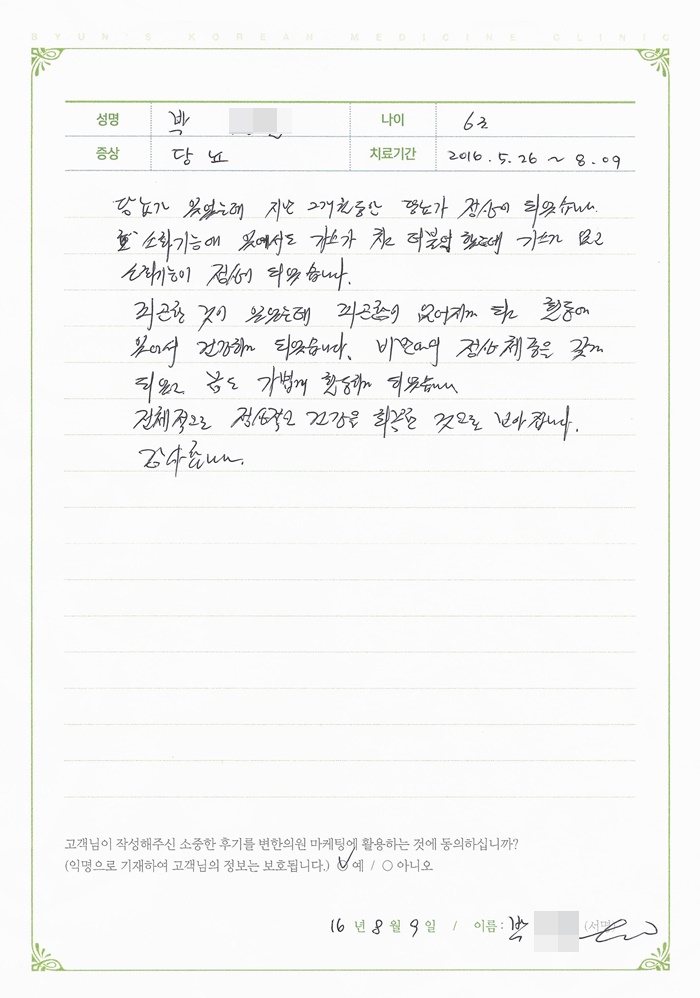 BYUN'S KOREAN MEDICINE CLINIC
성명 박 나이 63
증상 당뇨 치료기간 2016.5.26 ~ 8.09
당뇨가 있었는데 지난 2개월동안 당뇨가 정상이 되었습니다.
소화기능에 있어서도 가스가 차고 더불 했는데 가스가 없고
소화기능이 정상이 되었습니다.
피곤한 것이 있었는데 피곤증이 없어지게 되고 활동에
있어서 건강하게 되었습니다. 비만에서 정상체중을 갖게
되었고 몸도 가볍게 활동하게 되었습니다
전체적으로 정상적으로 건강을 회복한 것으로 보아집니다.
감사합니다.
고객님이 작성해주신 소중한 후기를 변한의원 마케팅에 활용하는 것에 동의하십니까?
(익명으로 기재하여 고객님의 정보는 보호됩니다.) 예 / 아니오
16 년 8 월 9 일 / 이름: 박 (서명)